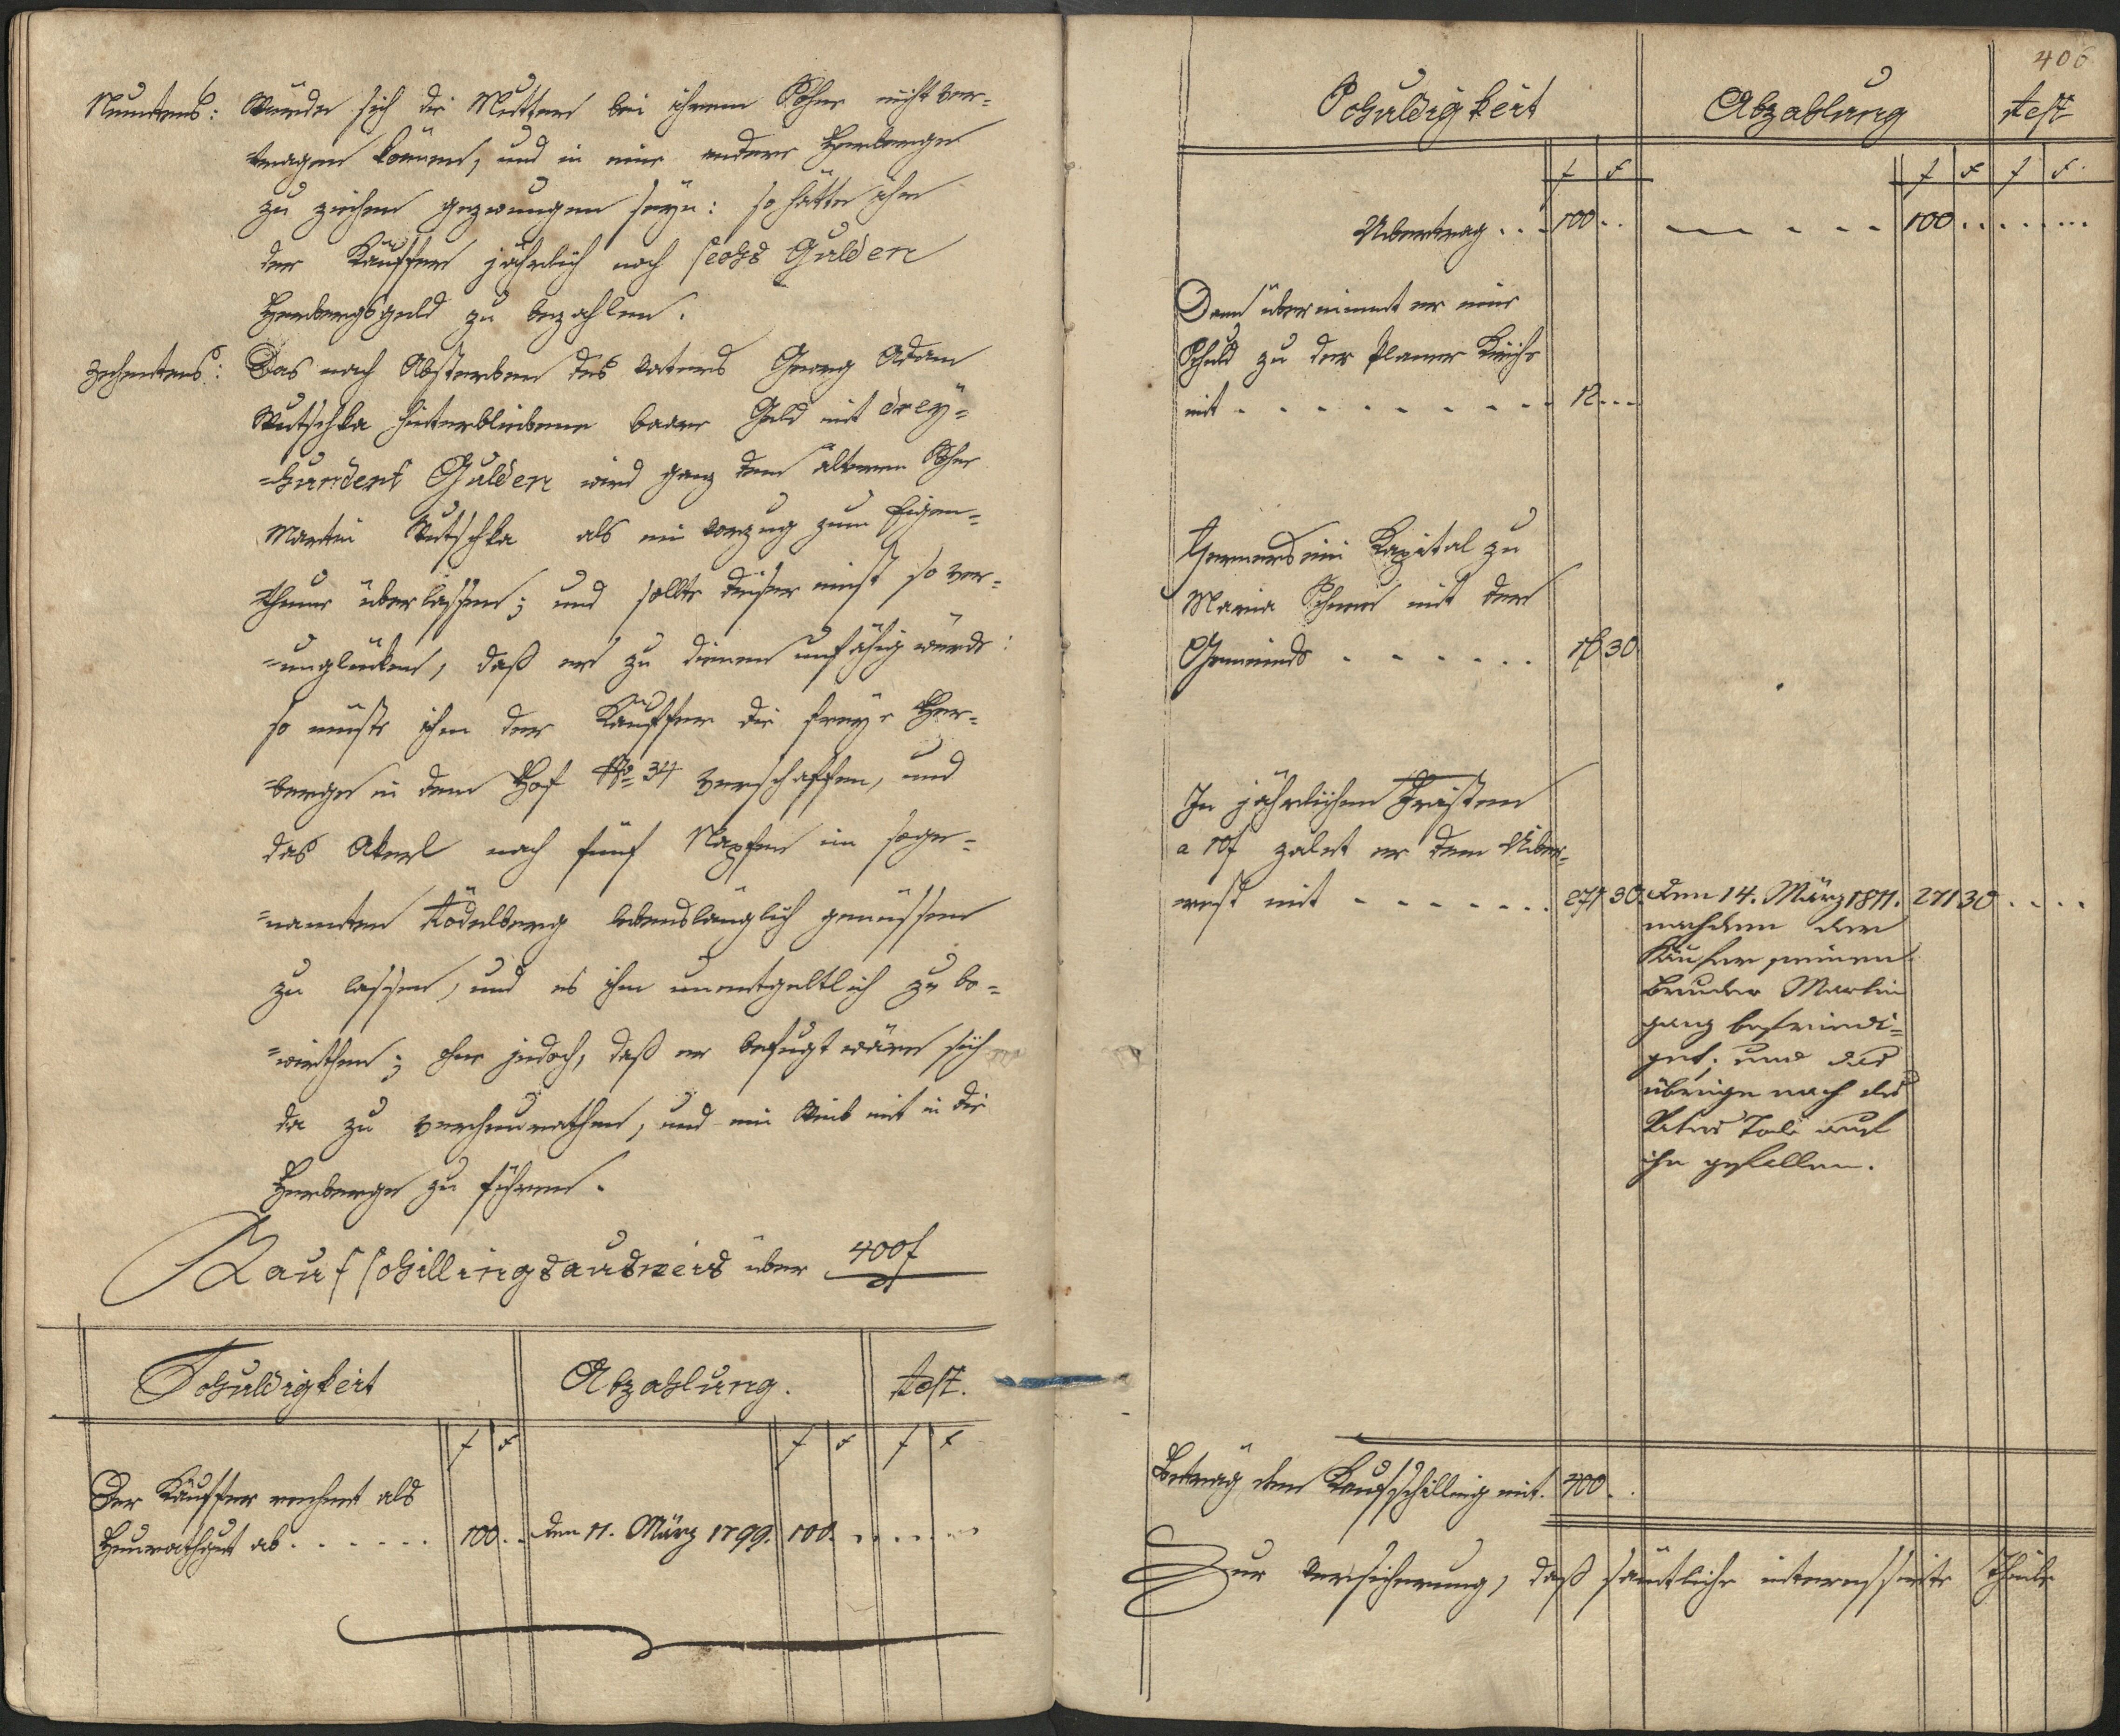 Neuntens: Würde sich die Mutter bei ihrem Sohne nicht ver-
tragen können, und in eine andere Herberge
zu ziehen gezwungen seyn: so hätte ihr
der Käuffer jährlich noch sechs Gulden
Herbergsgeld zu bezahlen.
Zehentens: Das nach Absterben des Vaters Georg Adam
Wutschka hinterbliebene baare Geld mit drey-
=hundert Gulden wird ganz dem ältern Sohne
Martin Wutschka als ein Vorzug zum Eigen-
thume überlassen; und sollte dieser einst so ver-
=unglücken, daß er zu dienen unfähig würde:
so müßte ihm der Käuffer die freye Her-
=berge in dem Hof No 34 verschaffen, und
das Akerl nach fünf Napfen im soge-
=nannten Rödelberg lebenslänglich genüssen
zu lassen, und es ihm unentgeltlich zu be-
=wirthen; ohne jedoch, daß er befugt wäre sich
da zu verheurathen, und ein Weib mit in die
Herberge zu führen.
Kaufschillingsausweis über 400 f
Schuldigkeit Abzahlung. Rest.
f x f x f x
Der Käuffer rechnet als
Heurathgut ab . . . . . . 100 . . den 11. März 1799. 100 . . . . .
406
Schuldigkeit Abzahlung Rest
f x f x f x
Übertrag . . . 100 . . - - - - - 100 . . . . . . .
Dann übernimmt er eine
Schuld zu der Planer Kirche
mit - - - - - - - - - 12 . . .
Ferners ein Kapital zu
Maria mit der
Gemeinde . . . . . . . 16 30
In jährlichen Fristen
a 10 f zalet er den Über-
=rest mit - - - - - - - 271 30. den 14. März 1811. 271 30 . . . .
nachdem der
Käufer seinen
Bruder Martin
ganz befriedi-
get; und das
übrige nach des
Vaters Tode auf
ihn gefallen.
Beträg den Kaufschilling mit. 400 . .
Zur Versicherung, daß sämtliche interessirte Theile